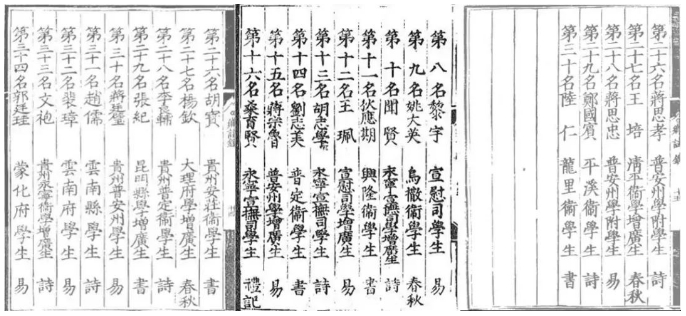 第二十六名胡寶 貴州安莊衛學生 書
第二十七名楊欽 大理府學增廣生 春秋
第二十八名李輔 貴州普定衛學生 易
第二十九名張紀 昆明縣學增廣生 書
第三十名蔣 貴州普安州學生 易
第三十一名趙儒 雲南縣學生 詩
第三十二名裴璋 雲南府學生 易
第三十三名文袍 貴州永寧衛學增廣生 詩
第三十四名郭廷 蒙化府學生 易
第八名黎宇 宣慰司學生 易
第九名姚大英 烏撒衛學生 春秋
第十名聞賢 永寧宣撫司學增廣生 詩
第十一名狄應期 興隆衛學生 書
第十二名王珮 宣慰司學增廣生 易
第十三名胡志學 永寧宣撫司學生 詩
第十四名劉志美 普定衛學生 書
第十五名蔣宗魯 普安州學增廣生 易
第十六名桑育賢 永寧宣撫司學生 禮記
第二十六名蔣思孝 普安州學附學生 詩
第二十七名王培 清平衛學增廣生 春秋
第二十八名蔣思忠 普安州學附學生 易
第二十九名鄭國賓 平溪衛學生 詩
第三十名陸仁 龍里衛學生 書